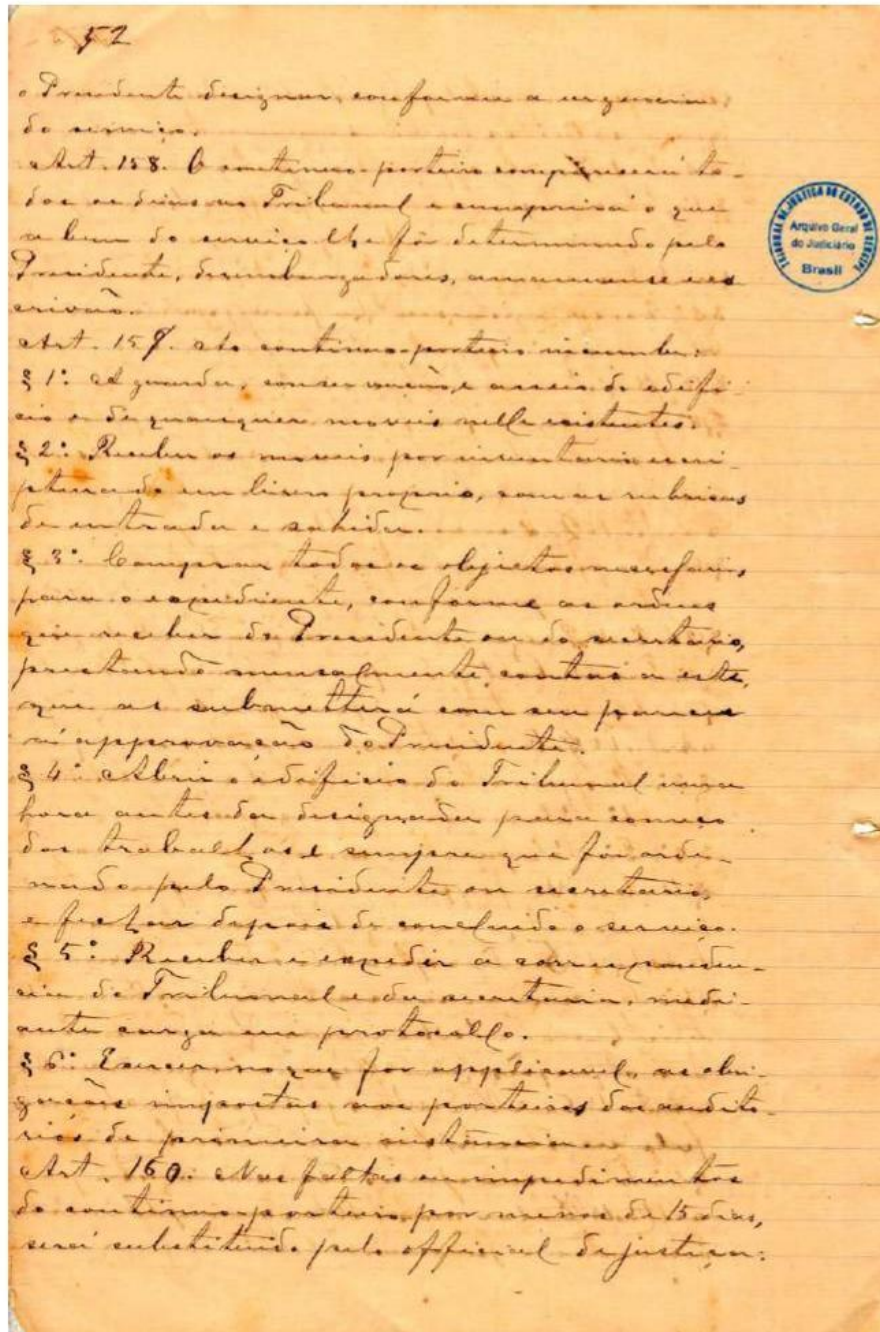 52
o Presidente designar, conforme a urgencia
do serviço.
Art. 158. O continuo-porteiro comparecerá to-
dos os dias no Tribunal e cumprirá o que
a bem do serviço lhe fôr determinado pelo
Presidente, desembargadores, amanuense e es-
crivão.
Art. 159. Ao continuo-porteiro incumbe:
§ 1º. A guarda, conservação, e asseio do edifi-
cio e de quaesquer moveis nelle existentes.
§ 2º. Receber os moveis por inventario escri-
pturado em livro proprio, com as rubricas
de entrada e sahida.
§ 3º. Comprar todos os objectos necessarios
para o expediente, conforme as ordens
que receber do Presidente ou do secretario,
prestando mensalmente, contas a este,
que as submetterá com seu parecer
á approvação do Presidente.
§ 4º. Abrir o edificio do Tribunal uma
hora antes da designada para começo
dos trabalhos e sempre que fôr orde-
nado pelo Presidente ou secretario,
e fechar depois de concluido o serviço.
§ 5º. Receber e expedir a corresponden-
cia do Tribunal e da secretaria, medi-
ante carga em protocollo.
§ 6º. Exercer, no que for applicavel, as obri-
gações impostas aos porteiros dos audito-
rios de primeira instancia.
Art. 160. Nas faltas ou impedimentos
do continuo-porteiro por menos de 15 dias,
será substituido pelo official de justiça:
TRIBUNAL DE JUSTIÇA DO ESTADO DE SERGIPE
Arquivo Geral
do Judiciário
Brasil